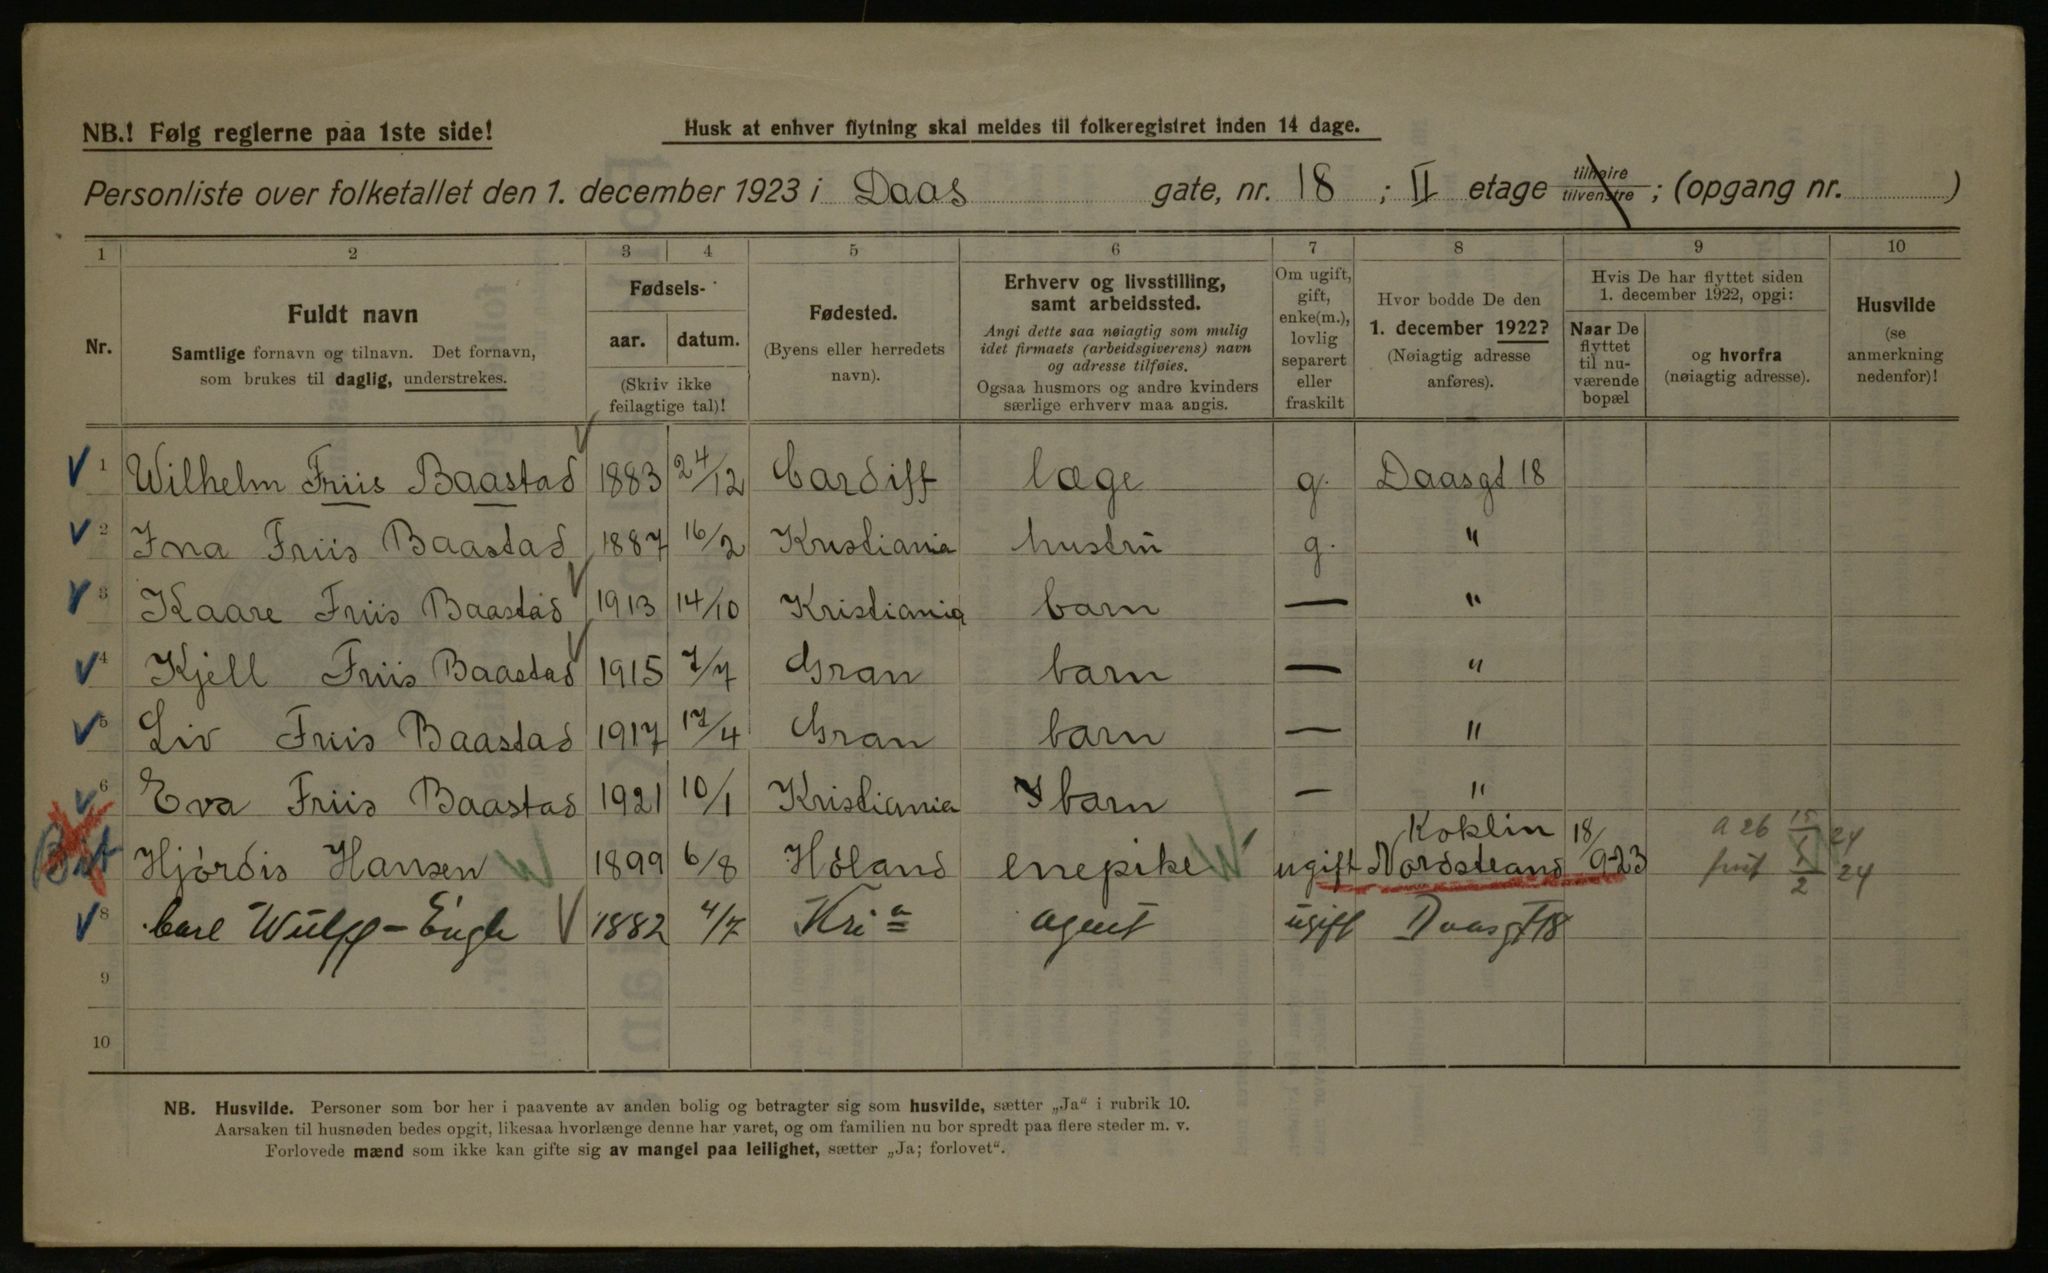 NB.! Følg reglerne paa 1ste side!
Husk at enhver flytning skal meldes til folkeregistret inden 14 dage.
Personliste over folketallet den 1. december 1923 i Daas gate, nr. 18 ; II etage tilhøire tilvenstre ; (opgang nr. )
1 2 3 4 5 6 7 8 9 10
Nr.
Fuldt navn
Samtlige fornavn og tilnavn. Det fornavn,
som brukes til daglig, understrekes.
Fødsels-
aar. datum.
(Skriv ikke
feilagtige tal)!
Fødested.
(Byens eller herredets
navn).
Erhverv og livsstilling,
samt arbeidssted.
Angi dette saa nøiagtig som mulig
idet firmaets (arbeidsgiverens) navn
og adresse tilføies.
Ogsaa husmors og andre kvinders
særlige erhverv maa angis.
Om ugift,
gift,
enke(m.),
lovlig
separert
eller
fraskilt
Hvor bodde De den
1. december 1922?
(Nøiagtig adresse
anføres).
Hvis De har flyttet siden
1. december 1922, opgi:
Naar De
flyttet
til nu-
værende
bopæl
og hvorfra
(nøiagtig adresse).
Husvilde
(se
anmerkning
nedenfor)!
1 Wilhelm Friis Baastad 1883 24/12 Cardiff læge g. Daasgt 18
2 Ina Friis Baastad 1887 16/2 Kristiania hustru g. "
3 Kaare Friis Baastad 1913 14/10 Kristiania barn — "
4 Kjell Friis Baastad 1915 7/7 Gran barn — "
5 Liv Friis Baastad 1917 17/4 Gran barn — "
6 Eva Friis Baastad 1921 10/1 Kristiania barn — "
Hjørdis Hansen 1899 6/8 Høland enepike ugift Koklin Nordstrand 18/9-23
8 Carl Wulff-Engh 1882 4/7 Kria agent ugift Daasgt 18
9
10
NB. Husvilde. Personer som bor her i paavente av anden bolig og betragter sig som husvilde, sætter „Ja“ i rubrik 10.
Aarsaken til husnøden bedes opgit, likesaa hvorlænge denne har varet, og om familien nu bor spredt paa flere steder m. v.
Forlovede mænd som ikke kan gifte sig av mangel paa leilighet, sætter „Ja; forlovet“.